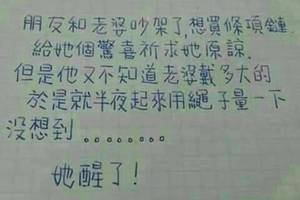 朋友和老婆吵架了,想買條項鏈
給她個驚喜祈求她原諒.
但是他又不知道老婆戴多大的
於是就半夜起來用繩子量一下
没想到........
她醒了!